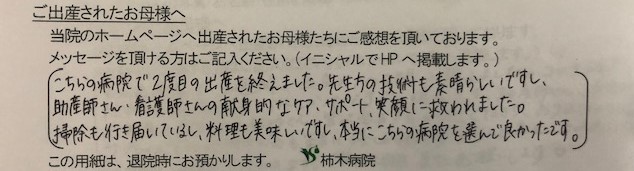 ご出産されたお母様へ
当院のホームページへ出産されたお母様たちにご感想を頂いております。
メッセージを頂ける方はご記入ください。(イニシャルでHPへ掲載します。)
こちらの病院で2度目の出産を終えました。先生方の技術も素晴らしいですし、
助産師さん・看護師さんの献身的なケア、サポート、笑顔に救われました。
掃除も行き届いているし、料理も美味しいですし、本当にこちらの病院を選んで良かったです。
この用紙は、退院時にお預かりします。 柿木病院